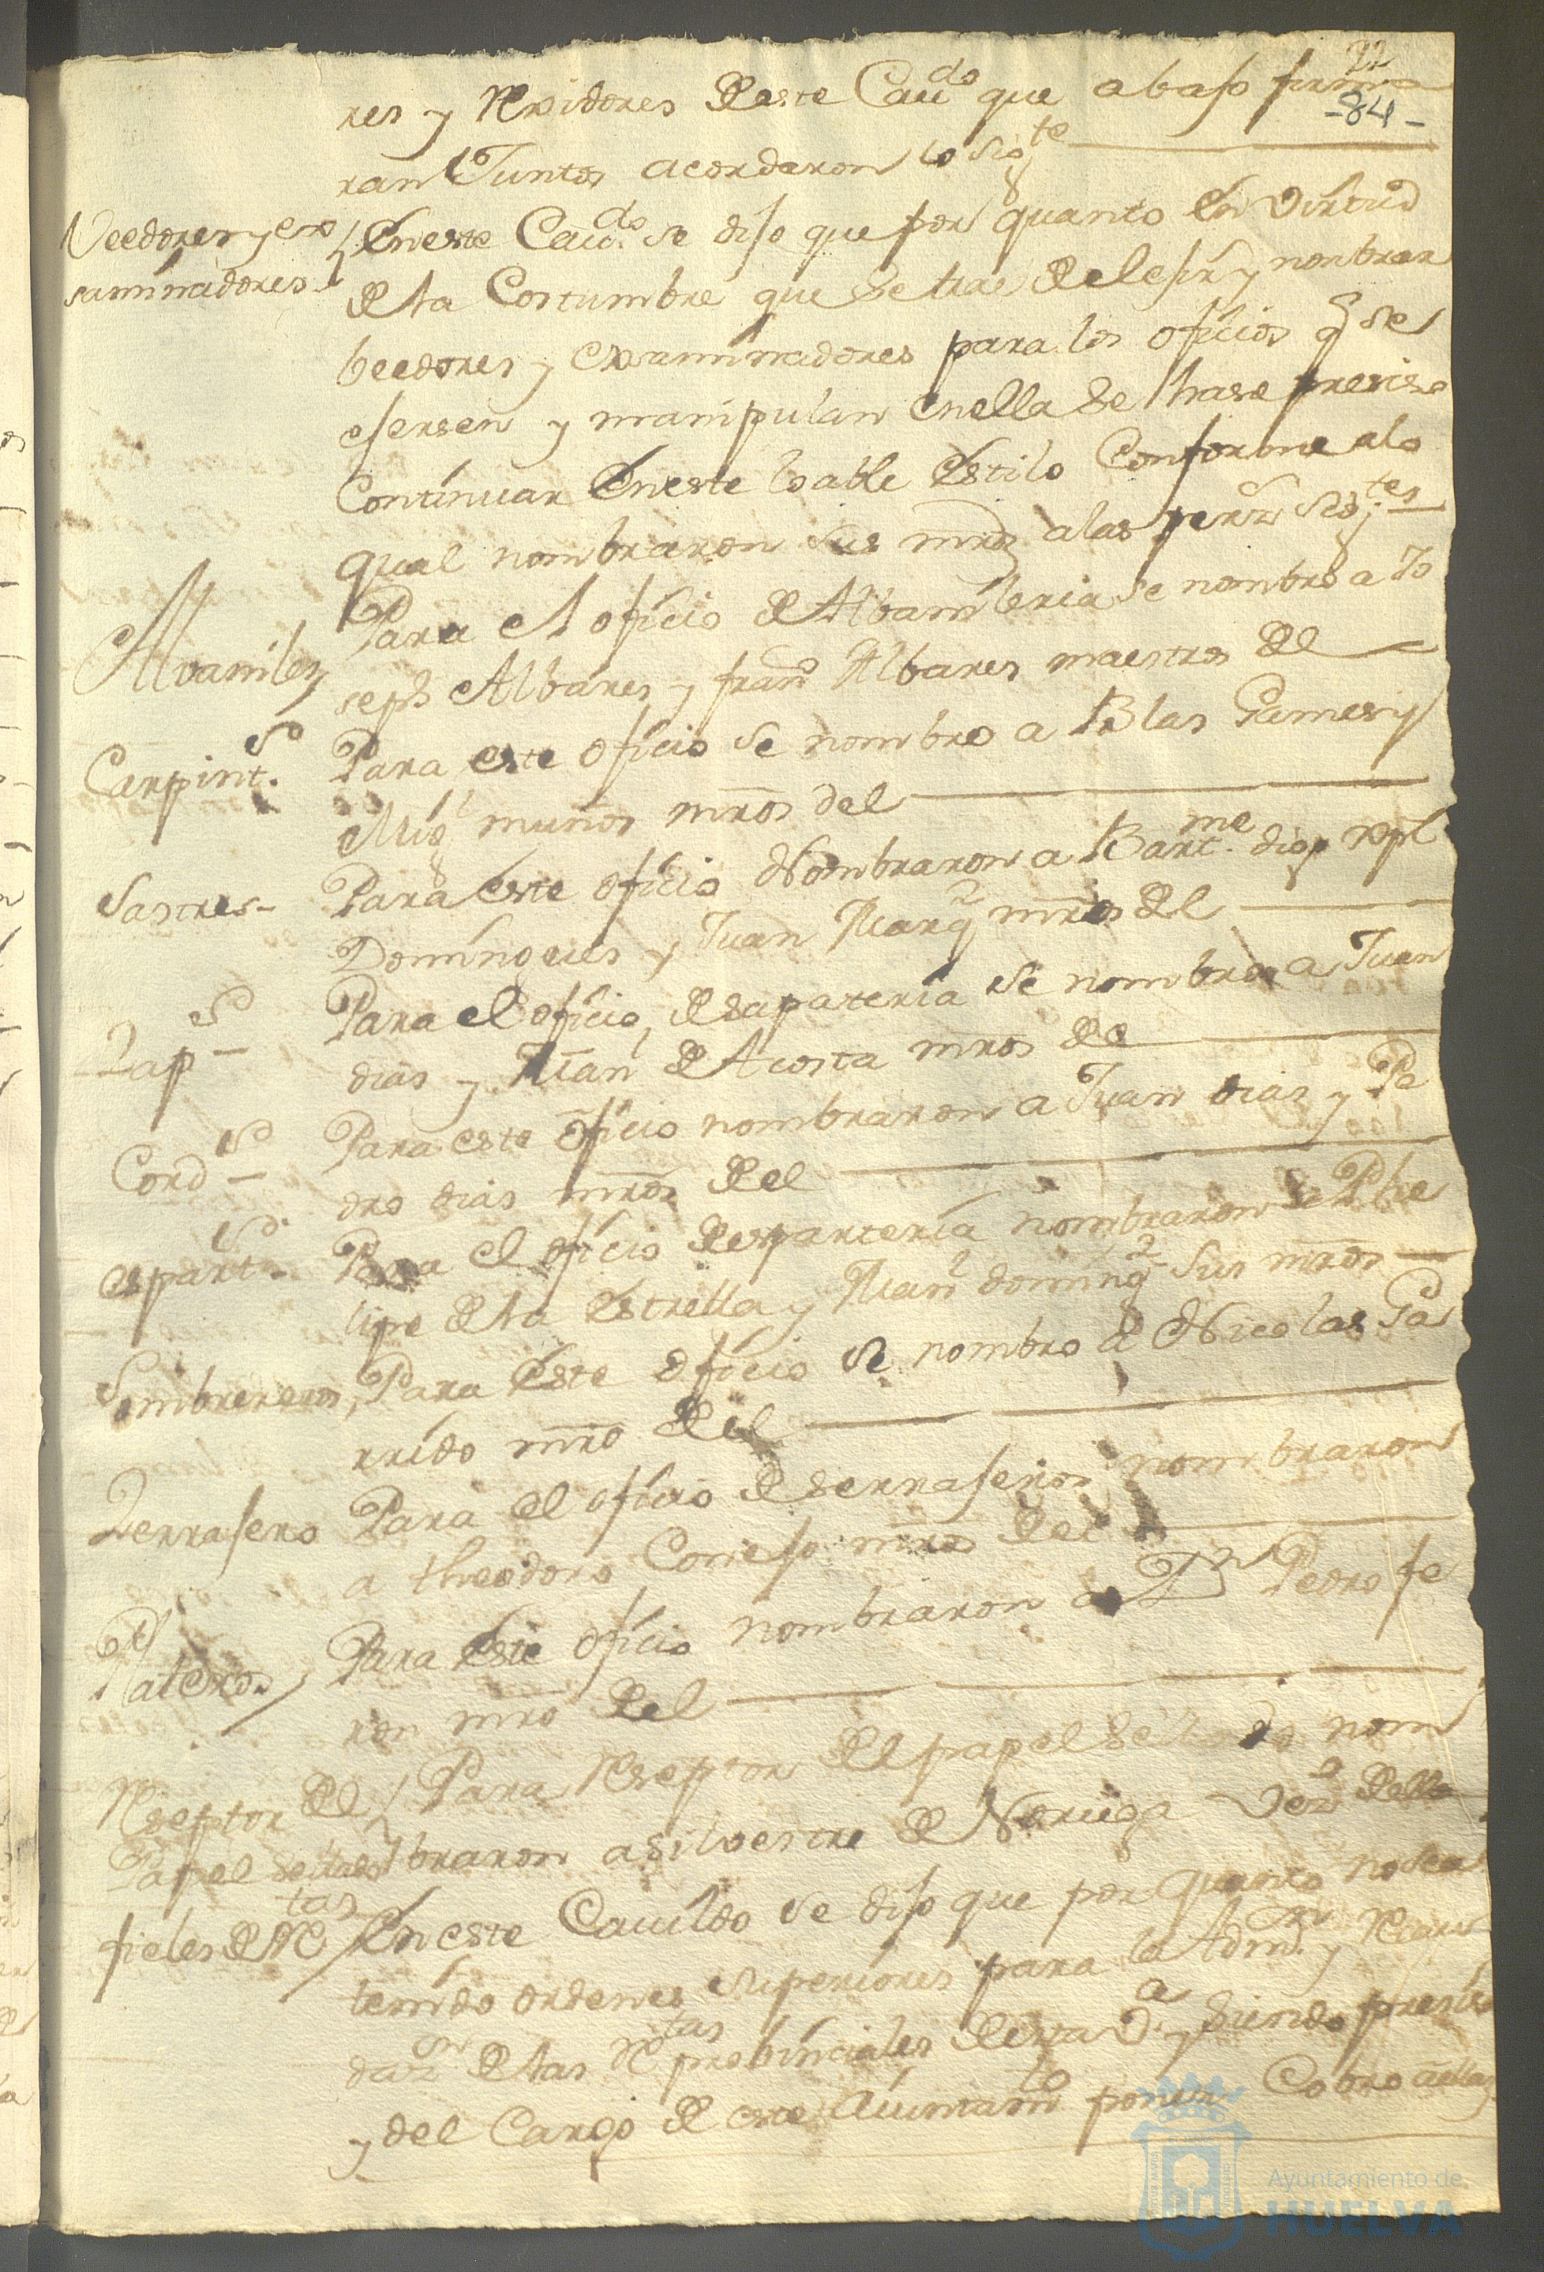 22
-84-
res y Rexidores deste Cavdo que abajo firma
ran Juntos acordaron lo sigte
Veedores y exa
saminadores
En este Cavdo se dijo que por quanto en virtud
de la Costumbre que se trae de elejir y nonbrar
beedores y examinadores para los oficios q se
ejersen y manipulan en ella se hase presiso
Continuar en este loable estilo Conforme alo
qual nombraron sus mrds alas pers sigtes
Alvaniles
Para el oficio de Albanileria se nombro a Jo
seph Albares y franco Albares maestros de
Carpintos
Para este oficio se nombro a Blas Games y
Migl muños mros del
Sastres
Para este oficio Nombraron a Bartme
Domingues y Juan Marqz mros del
Zaps
Para el oficio de sapateria se nombro a Juan
dias y Manl de Acosta mros de
Cords
Para este oficio nombraron a Juan dias y Pe
dro dias mros del
esparts
Para el oficio de esparteria nombraron a Phe
lipe de la Estrella y Manl domingz sus mros
Sombrereros
Para este oficio se nombro a Nicolas Ga
rrido mro del
Zerrajero
Para el oficio de serrajeros nombraron
a theodoro Cornejo mros del
Plateros
Para este oficio nombraron a Dn Pedro fe
ron mro del
Reseptor del
Papel sellado
Para Reseptor del papel sellado nom
braron a silvestre de Noruega Vezo della
fieles de Rtas
En este Cavildo se dijo que por quanto no sea
tenido ordenes superiores para la Admn y Recau
dazn de las Rtas probinciales de esta Va y siendo presiso
y del Cargo de este Aiuntamto poner Cobro aellas
Ayuntamiento de
HUELVA